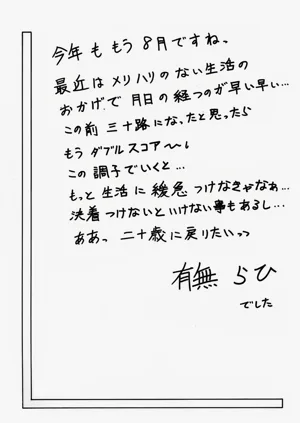 今年ももう8月ですね。
最近はメリハリのない生活の
おかげで月日の経つのが早い早い…
この前三十路になったと思ったら
もうダブルスコア〜〜。
この調子でいくと…
もっと生活に緩急つけなきゃなぁ…
決着つけないといけない事もあるし…
ああっ二十歳に戻りたいっっ
有無らひ
でした